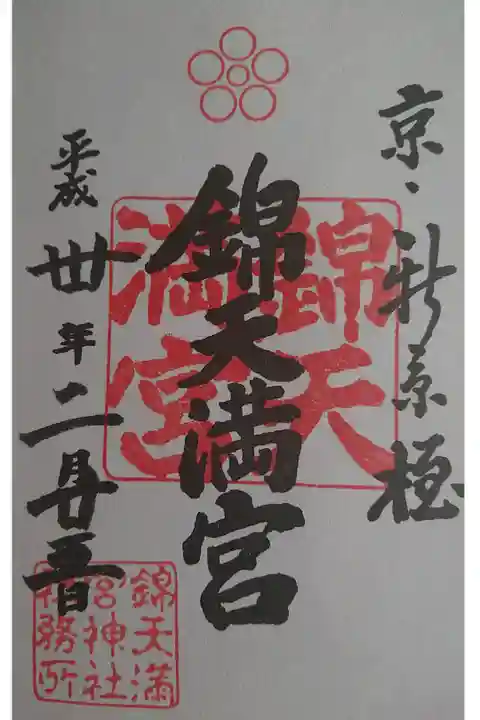 京・新京極
錦天満宮
錦天
満宮
平成丗年二月廿五日
錦天満
宮神社
社務所